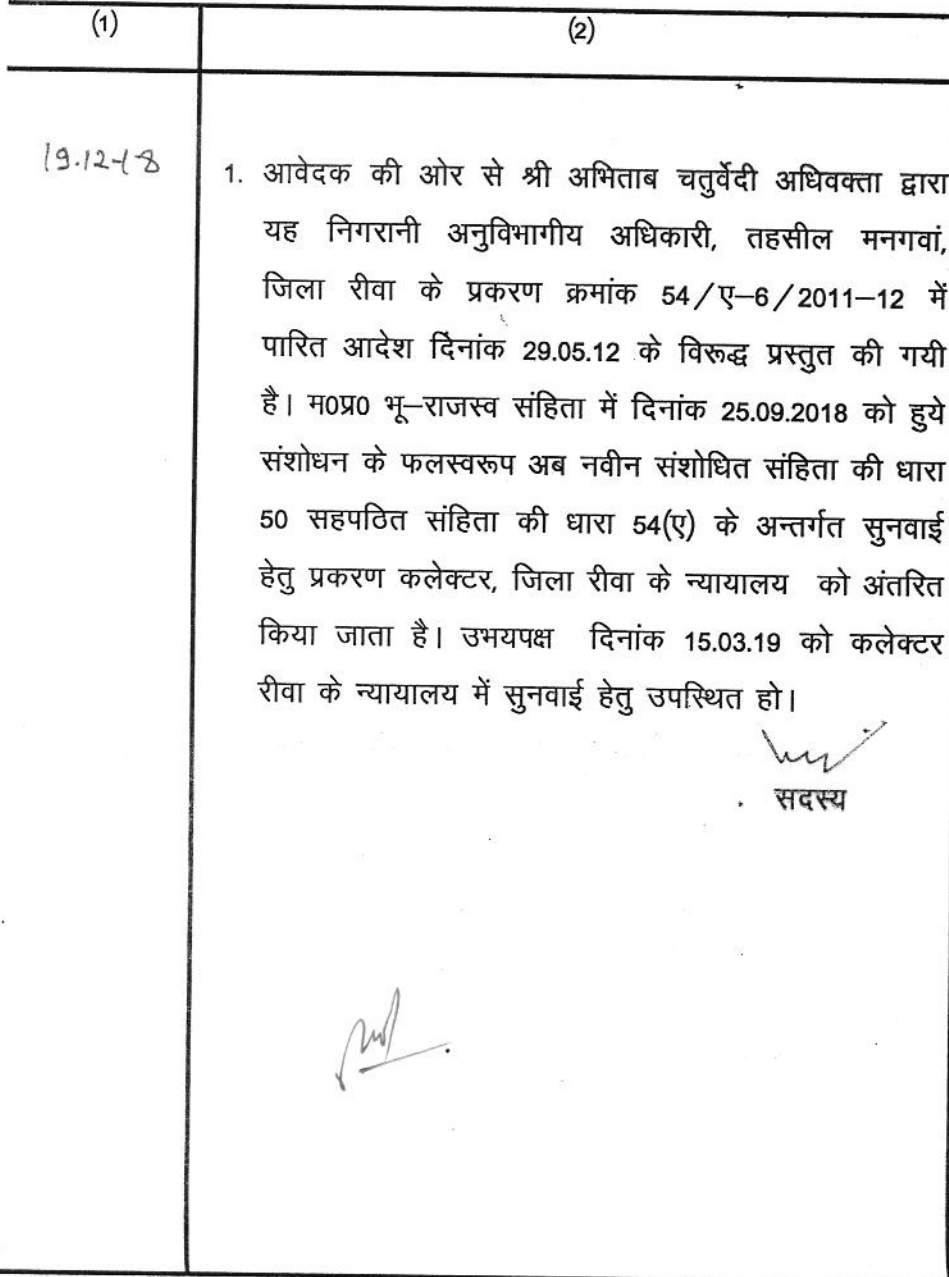 (1)
(2)
19.12-18
1. आवेदक की ओर से श्री अभिताब चतुर्वेदी अधिवक्ता द्वारा
यह निगरानी अनुविभागीय अधिकारी, तहसील मनगवां,
जिला रीवा के प्रकरण क्रमांक 54/ए–6/2011–12 में
पारित आदेश दिंनांक 29.05.12 के विरूद्ध प्रस्तुत की गयी
है। म0प्र0 भू–राजस्व संहिता में दिनांक 25.09.2018 को हुये
संशोधन के फलस्वरूप अब नवीन संशोधित संहिता की धारा
50 सहपठित संहिता की धारा 54(ए) के अन्तर्गत सुनवाई
हेतु प्रकरण कलेक्टर, जिला रीवा के न्यायालय को अंतरित
किया जाता है। उभयपक्ष दिनांक 15.03.19 को कलेक्टर
रीवा के न्यायालय में सुनवाई हेतु उपस्थित हो।
सदस्य